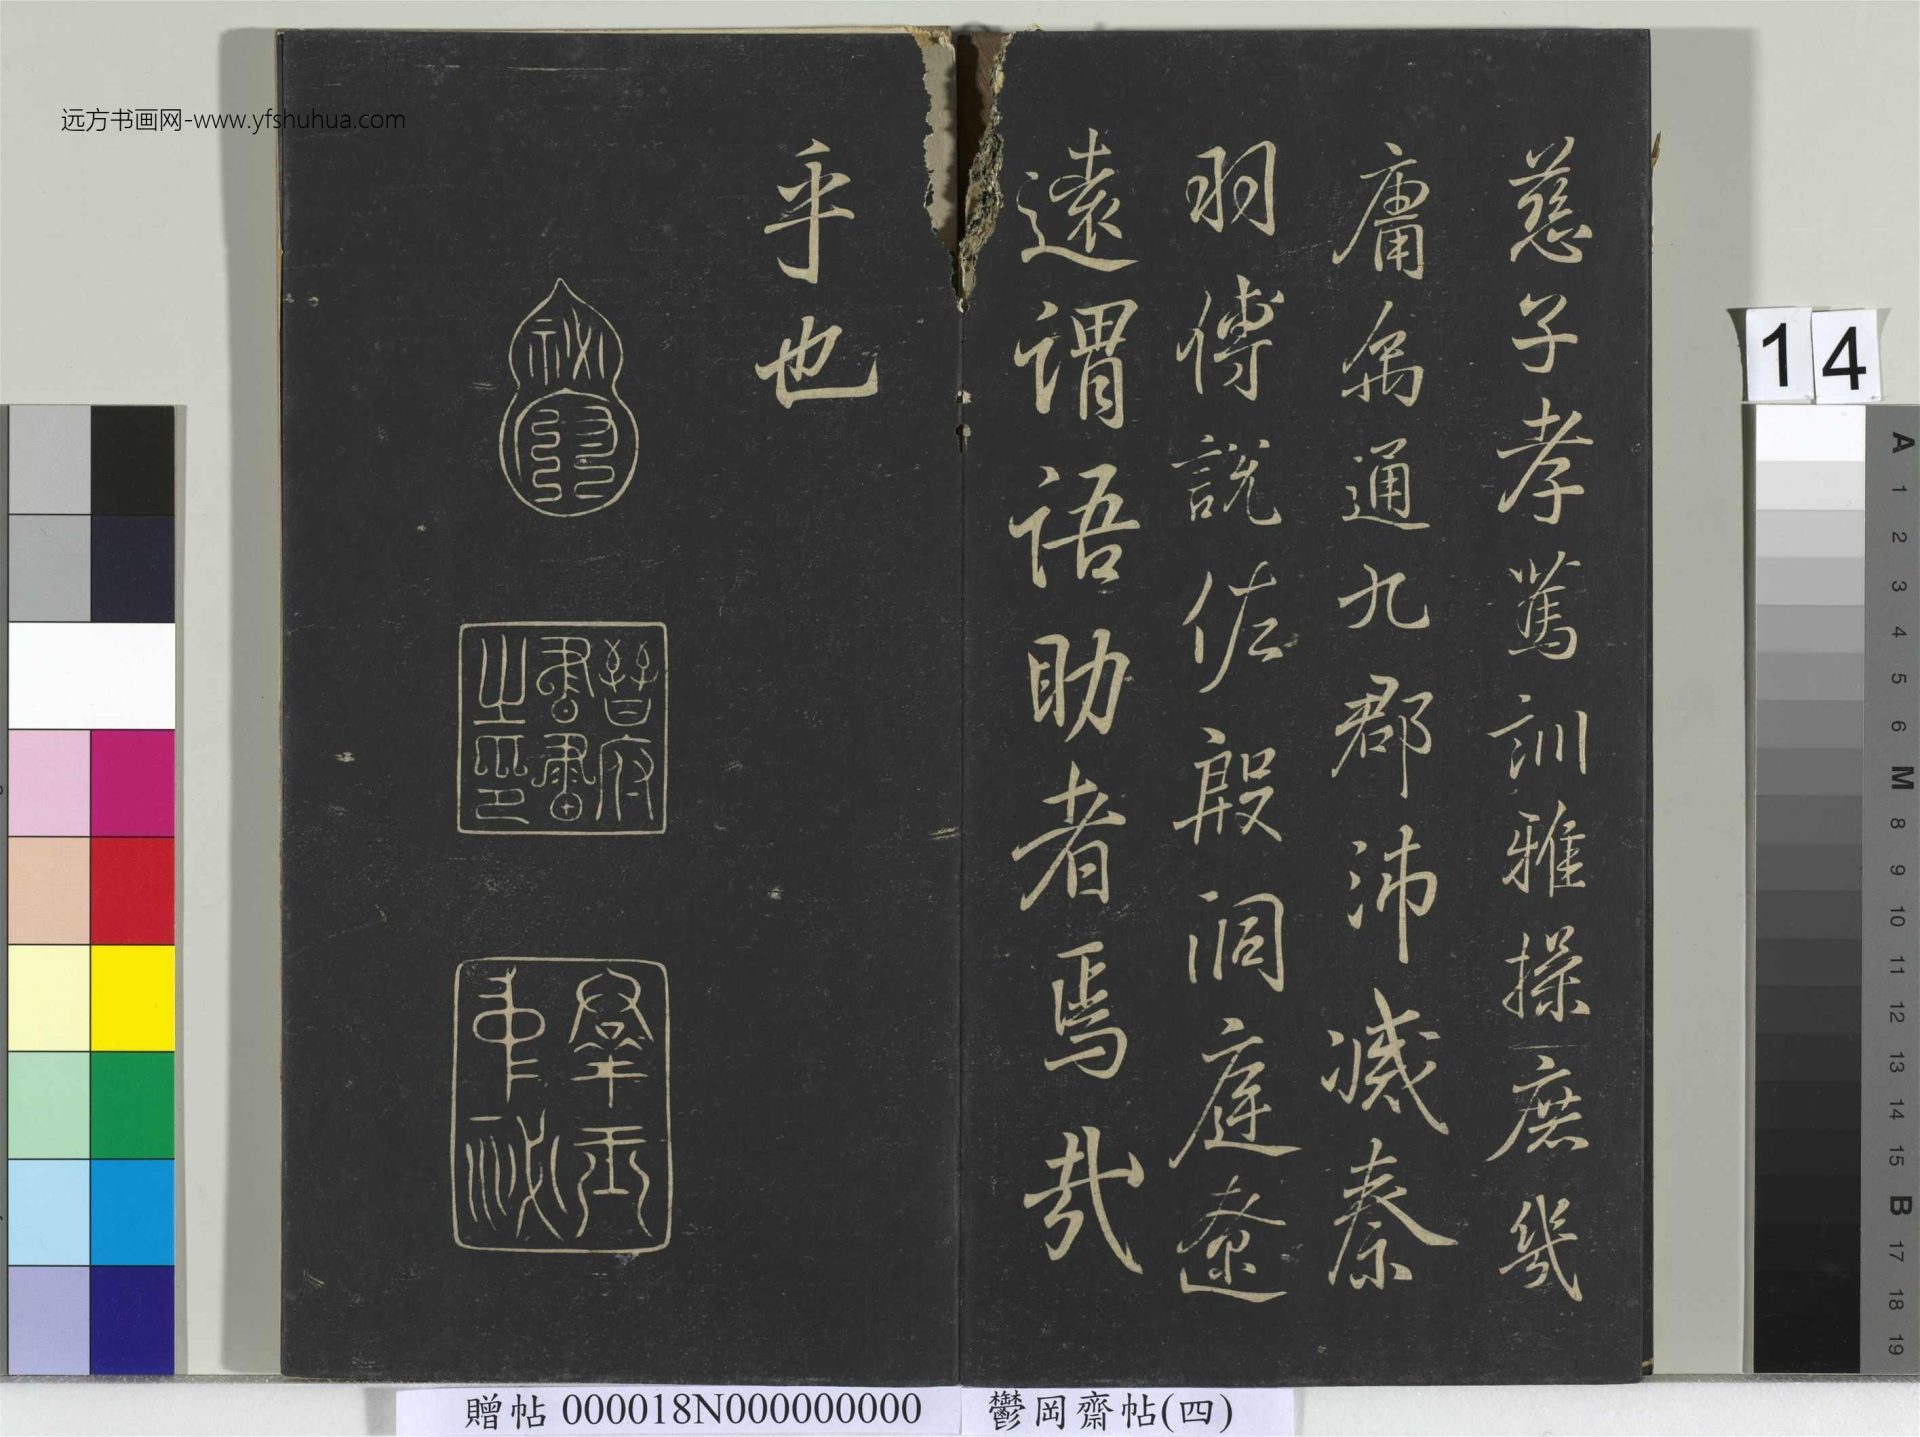 慈子孝篤訓雅操庶幾
庸爲通九郡沛滅秦
羽傅說佐殷洞庭遼
遠謂語助者焉哉
乎也
晉府
書畫
之印
远方书画网-www.yfshuhua.com
14
A
1
2
3
4
5
6
M
8
9
10
11
12
13
14
15
B
17
18
19
贈帖 000018N000000000
鬱岡齋帖(四)